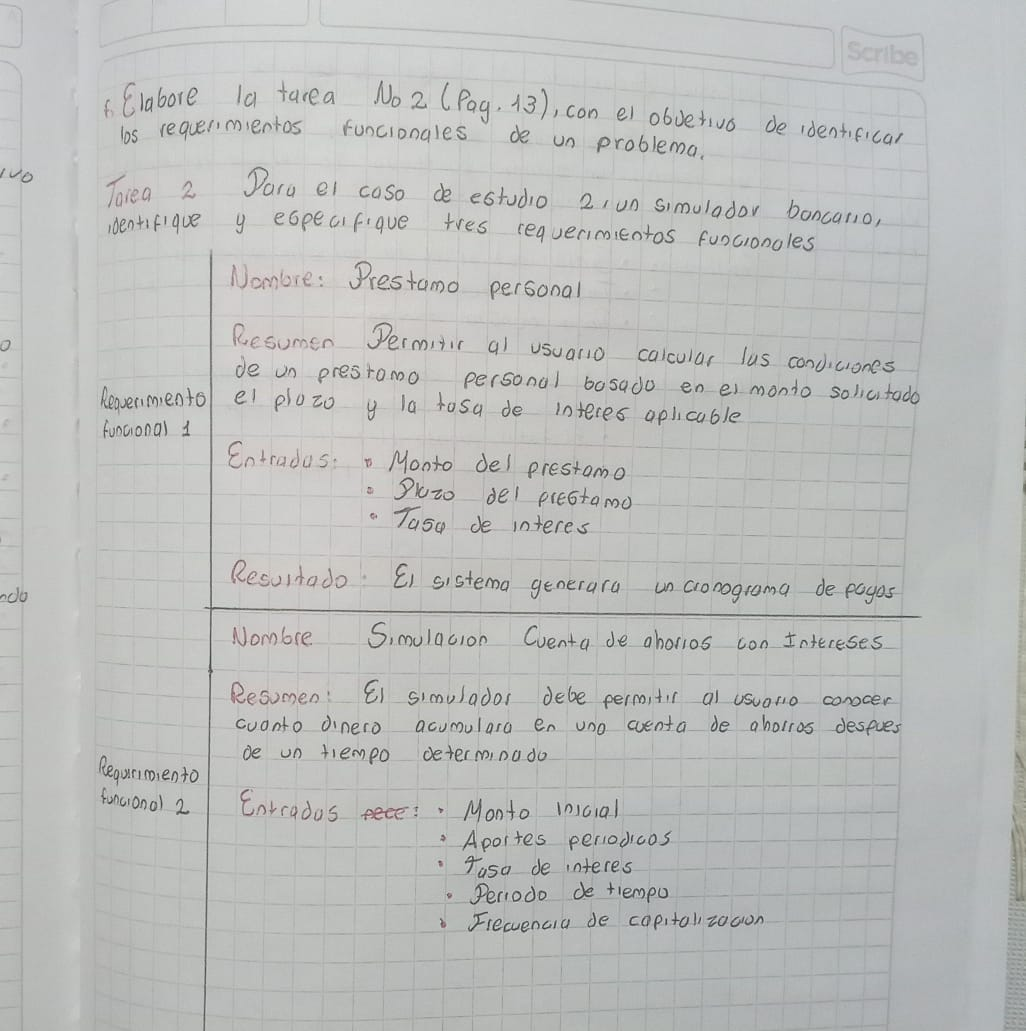 Scribe
6. Elabore la tarea No 2 (Pag. 13), con el objetivo de identificar
los requerimientos funcionales de un problema.
ivo
Tarea 2 Para el caso de estudio 2, un simulador bancario,
identifique y especifique tres requerimientos funcionales
Nombre: Prestamo personal
Resumen Permitir al usuario calcular las condiciones
de un prestamo personal basado en el monto solicitado
Requerimiento
funcional 1
el plazo y la tasa de interes aplicable
Entradas: • Monto del prestamo
• Plazo del prestamo
• Tasa de interes
Resultado: El sistema generara un cronograma de pagos
ndo
Nombre Simulacion Cuenta de ahorros con Intereses
Resumen: El simulador debe permitir al usuario conocer
cuanto dinero acumulara en una cuenta de ahorros despues
de un tiempo determinado
Requirimiento
funcional 2
Entradas : • Monto inicial
• Aportes periodicos
• Tasa de interes
• Periodo de tiempo
• Frecuencia de capitalizacion